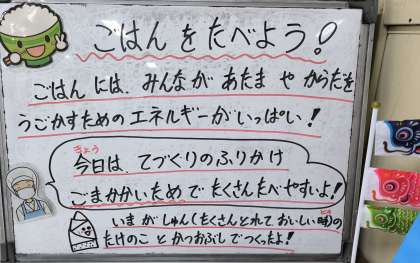 ごはんをたべよう!
ごはんには、みんながあたまやからだを
うごかすためのエネルギーがいっぱい!
きょう
今日は、てづくりのふりかけ
ごまかかいためでたくさんたべやすいよ!
いまがしゅん(たくさんとれておいしい時)の
たけのことかつおぶしでつくったよ!